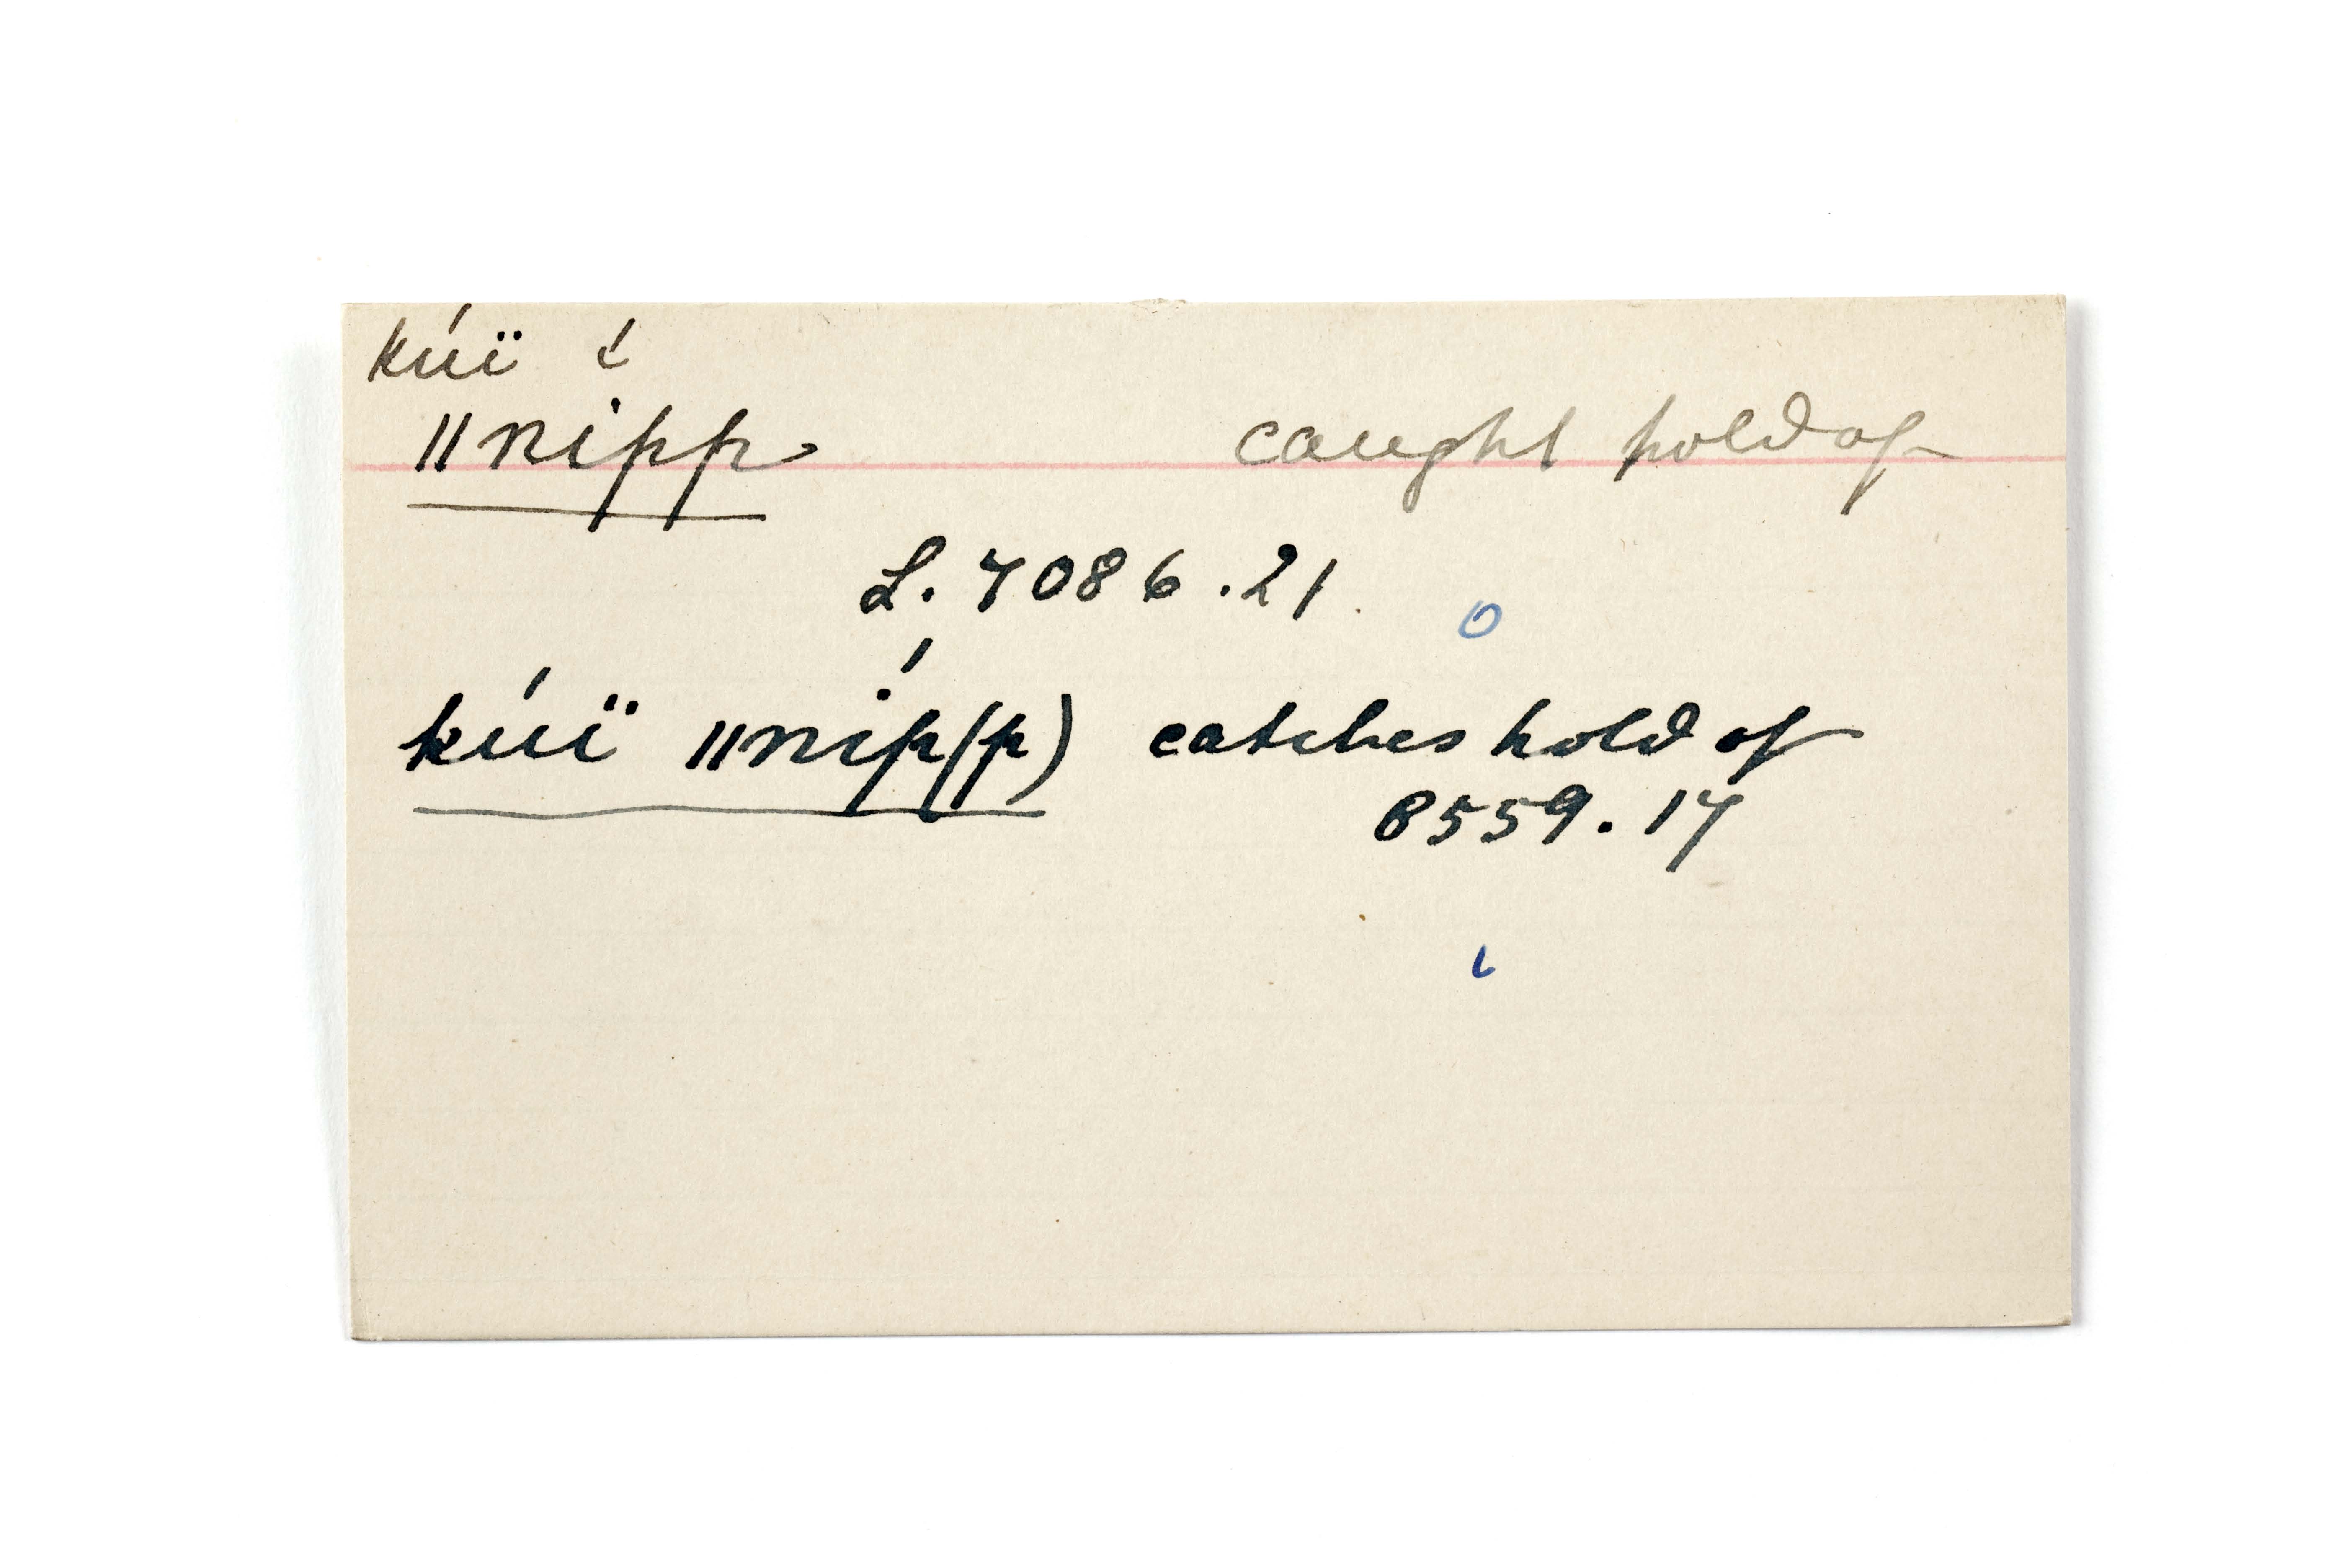 kúï
ǁnípp caught hold of
L. 7086.21.
kúï ǁníp(p) catches hold of
8559.17